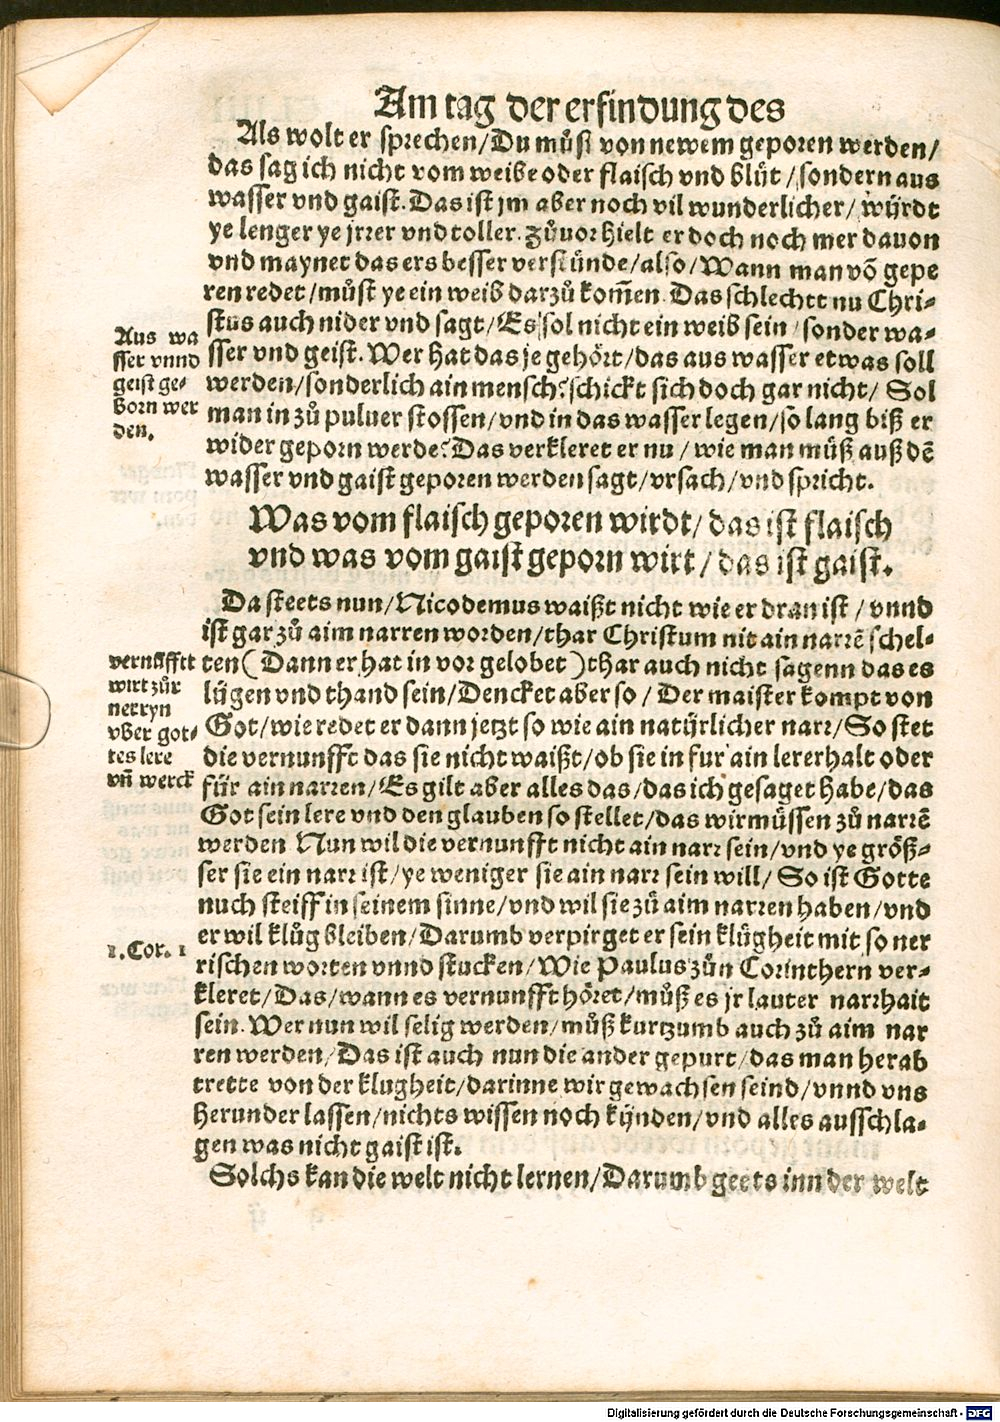 Am tag der erfindung des
Als wolt er sprechen/Du můst von newem geporen werden/
das sag ich nicht vom weibe oder flaisch vnd blůt/sondern aus
wasser vnd gaist. Das ist jm aber noch vil wunderlicher/ würdt
ye lenger ye jrrer vnd toller. Zůuor hielt er doch noch mer dauon
vnd maynet das ers besser verstünde/also/Wann man võ gepe
ren redet/můst ye ein weib darzů kom̃en. Das schlechtt nu Chri-
stus auch nider vnd sagt/Es sol nicht ein weib sein/sonder wa-
sser vnd geist. Wer hat das je gehört/das aus wasser etwas soll
werden/sonderlich ain mensch? schickt sich doch gar nicht/ Sol
man in zů puluer stossen/vnd in das wasser legen/so lang biß er
wider geporn werde? Das verkleret er nu/ wie man můß auß dē
wasser vnd gaist geporen werden sagt/vrsach/vnd spricht.
Aus wa
sser vnnd
geist ge-
born wer
den.
Was vom flaisch geporen wirdt/das ist flaisch
vnd was vom gaist geporn wirt/das ist gaist.
Da steets nun/Nicodemus waißt nicht wie er dran ist/vnnd
ist gar zů aim narren worden/thar Christum nit ain narrē schel-
ten(Dann er hat in vor gelobet)thar auch nicht sagenn das es
lügen vnd thand sein/Dencket aber so/ Der maister kompt von
Got/wie redet er dann jetzt so wie ain natürlicher narr/So stet
die vernunfft das sie nicht waißt/ob sie in fur ain lerer halt oder
für ain narren/Es gilt aber alles das/das ich gesaget habe/das
Got sein lere vnd den glauben so stellet/das wir müssen zů narrē
werden Nun wil die vernunfft nicht ain narr sein/vnd ye größ-
ser sie ein narr ist/ye weniger sie ain narr sein will/ So ist Gotte
nuch steiff in seinem sinne/vnd wil sie zů aim narren haben/vnd
er wil klůg bleiben/Darumb verpirget er sein klůgheit mit so ner
rischen worten vnnd stucken/Wie Paulus zůn Corinthern ver-
kleret/Das/wann es vernunfft höret/můß es jr lauter narrhait
sein. Wer nun wil selig werden/můß kurtzumb auch zů aim nar
ren werden/Das ist auch nun die ander gepurt/das man herab
trette von der klugheit/darinne wir gewachsen seind/vnnd vns
herunder lassen/nichts wissen noch künden/vnd alles ausschla-
gen was nicht gaist ist.
Solchs kan die welt nicht lernen/Darumb geets inn der welt
vernůfft
wirt zůr
nerryn
vber got-
tes lere
vñ werck
1.Cor. 1
Digitalisierung gefördert durch die Deutsche Forschungsgemeinschaft - DFG